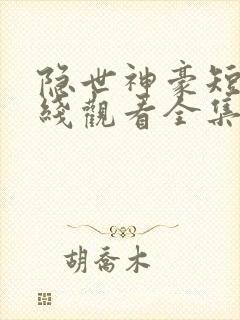 隐世神豪短
线觀看全集
胡喬木